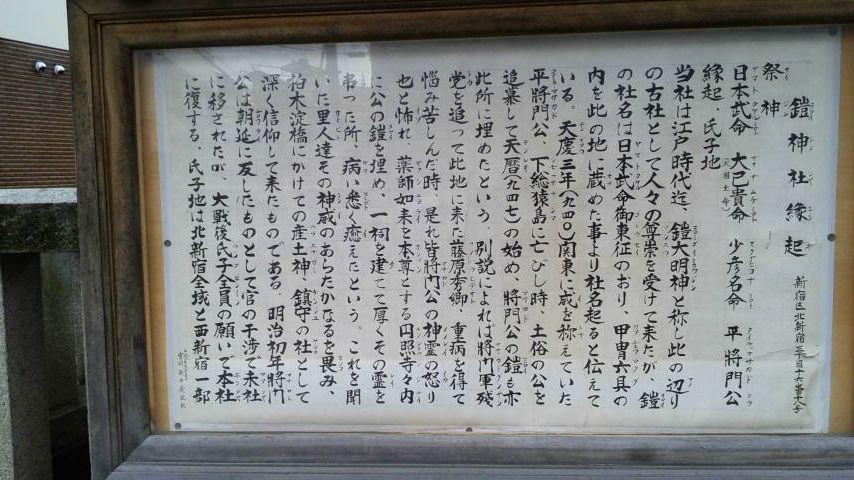 鎧神社縁起
新宿区北新宿三丁目十六番十八号
祭神
日本武命 大己貴命 少彦名命 平將門公
縁起、氏子地
当社は江戸時代迄、鎧大明神と称し此の辺り
の古社として人々の尊崇を受けて来たが、鎧
の社名は日本武命御東征のおり、甲冑六具の
内を此の地に蔵めた事より社名起ると伝えて
いる。天慶三年(九四〇)関東に威を称えていた
平將門公、下総猿島に亡びし時、土俗の公を
追慕して天暦(九四七)の始め、將門公の鎧も亦
此所に埋めたという。別説によれば將門軍残
党を追って此地に来た藤原秀郷、重病を得て
悩み苦しんだ時、是れ皆將門公の神霊の怒り
也と怖れ、薬師如来を本尊とする円照寺々内
に公の鎧を埋め、一祠を建てて厚くその霊を
弔った所、病い悉く癒えたという。これを聞
いた里人達その神威のあらたかなるを畏み、
柏木淀橋にかけての産土神、鎮守の社として
深く信仰して来たものである。明治初年將門
公は朝廷に反したものとして官の干渉で末社
に移されたが、大戦後氏子全員の願いで本社
に復する。氏子地は北新宿全域と西新宿一部